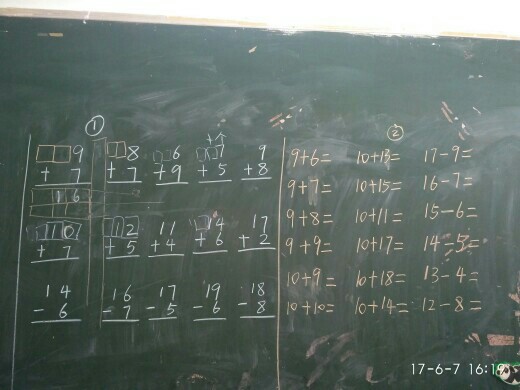 ① ②
+个
9 8 6 7 9
+ 7 + 7 + 9 + 5 + 8
16
10 12 11 14 17
+ 7 + 5 + 4 + 6 + 2
14 16 17 19 18
- 6 - 7 - 5 - 6 - 8
9+6= 10+13= 17-9=
9+7= 10+15= 16-7=
9+8= 10+11= 15-6=
9+9= 10+17= 14-5=
10+9= 10+18= 13-4=
10+10= 10+14= 12-8=
17-6-7 16:19